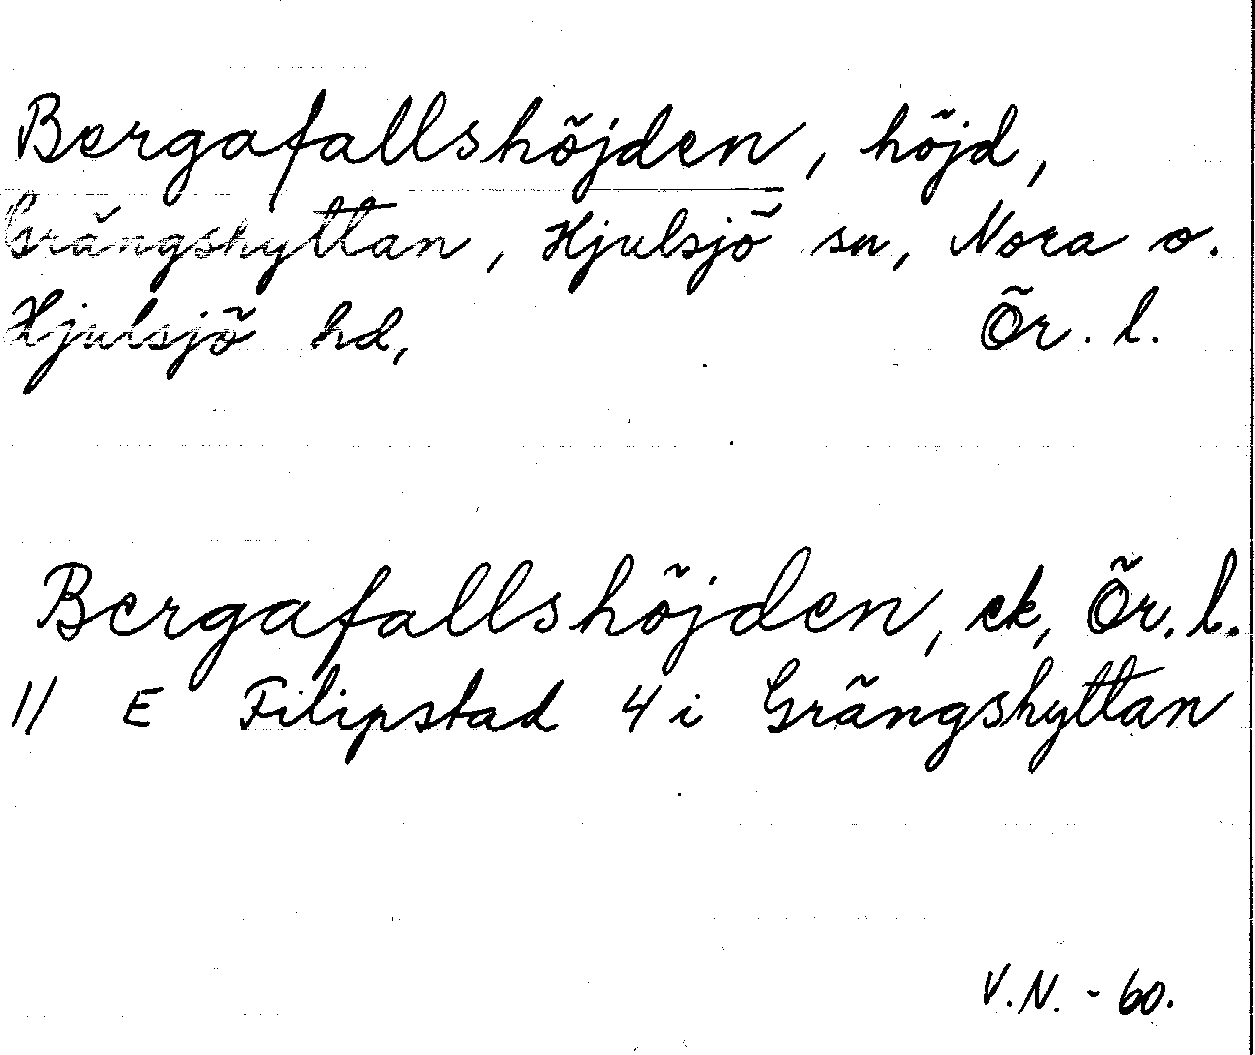 Bergafallshöjden, höjd,
Grängshyttan, Hjulsjö sn, Nora o.
Hjulsjö hd, Ör. l.
Bergafallshöjden, ek, Ör. l.
11 E Filipstad 4 i Grängshyttan
V.N. - 60.